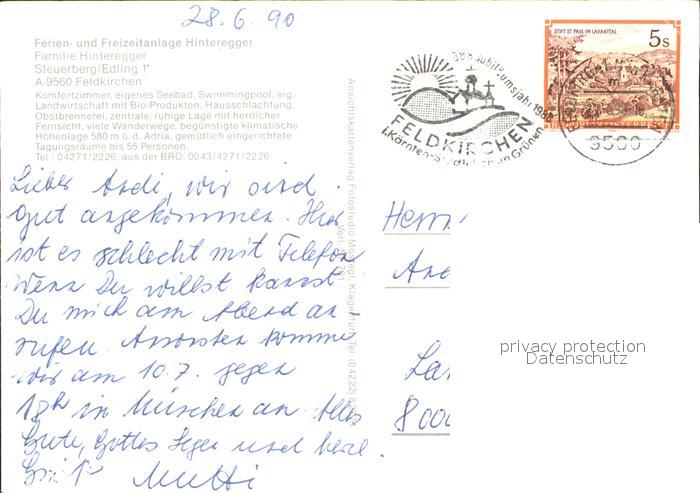 28.6.90
Ferien- und Freizeitanlage Hinteregger
Familie Hinteregger
Steuerberg/Edling 1*
A-9560 Feldkirchen
Komfortzimmer, eigenes Seebad, Swimmingpool, eig.
Landwirtschaft mit Bio-Produkten, Hausschlachtung,
Obstbrennerei, zentrale, ruhige Lage mit herrlicher
Fernsicht, viele Wanderwege, begünstigte klimatische
Höhenlage 580 m ü. d. Adria, gemütlich eingerichtete
Tagungsräume bis 55 Personen.
Tel.: 04271/2226, aus der BRD: 0043/4271/2226
Lieber Andi, wir sind
gut angekommen. Hier
ist es schlecht mit Telefon
Wenn Du willst kannst
Du mich am Abend an-
rufen. Ansonsten kommen
wir am 10.7. gegen
18h in München an. Alles
Gute, Gottes Segen und herzl.
Mutti
Ansichtskartenverlag Fotostudio Klagenfurt Tel. (04222)
FELDKIRCHEN
i. Kärnten-Stadt im Grünen
STIFT ST. PAUL IM LAVANTTAL
5 S
REPUBLIK ÖSTERREICH
9560
Herrn
Lan
8000
privacy protection
Datenschutz